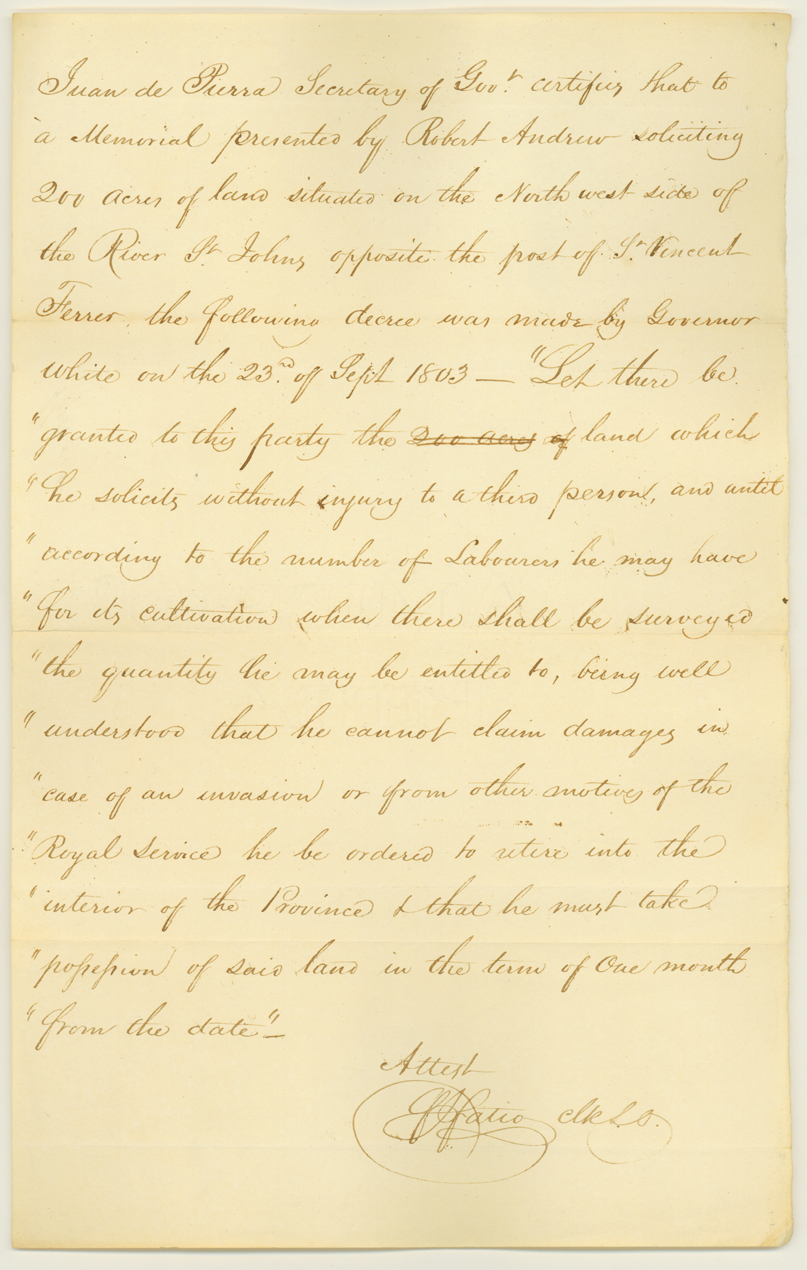 Juan de Pierra Secretary of Govt. certifies that to
a Memorial presented by Robert Andrew soliciting
200 acres of land situated on the North west side of
the River St. Johns opposite the post of St. Vincent
Ferrer, the following decree was made by Governor
white on the 23rd. of Sept 1803 — "Let there be
"granted to this party the 200 acres of land which
"he solicits without injury to a third person, and until
"according to the number of Labourers he may have
"for its cultivation when there shall be surveyed
"the quantity he may be entitled to, being well
"understood that he cannot claim damages in
"case of an invasion or from other motives of the
"Royal Service he be ordered to retire into the
"interior of the Province & that he must take
"possession of said land in the term of One month
"from the date"—
Attest